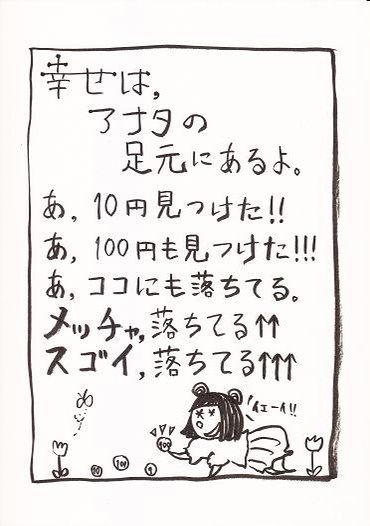 幸せは,
アナタの
足元にあるよ。
あ, 10円見つけた!!
あ, 100円も見つけた!!!
あ, ココにも落ちてる。
メッチャ, 落ちてる↑↑
スゴイ, 落ちてる↑↑↑
イエーイ!!
100